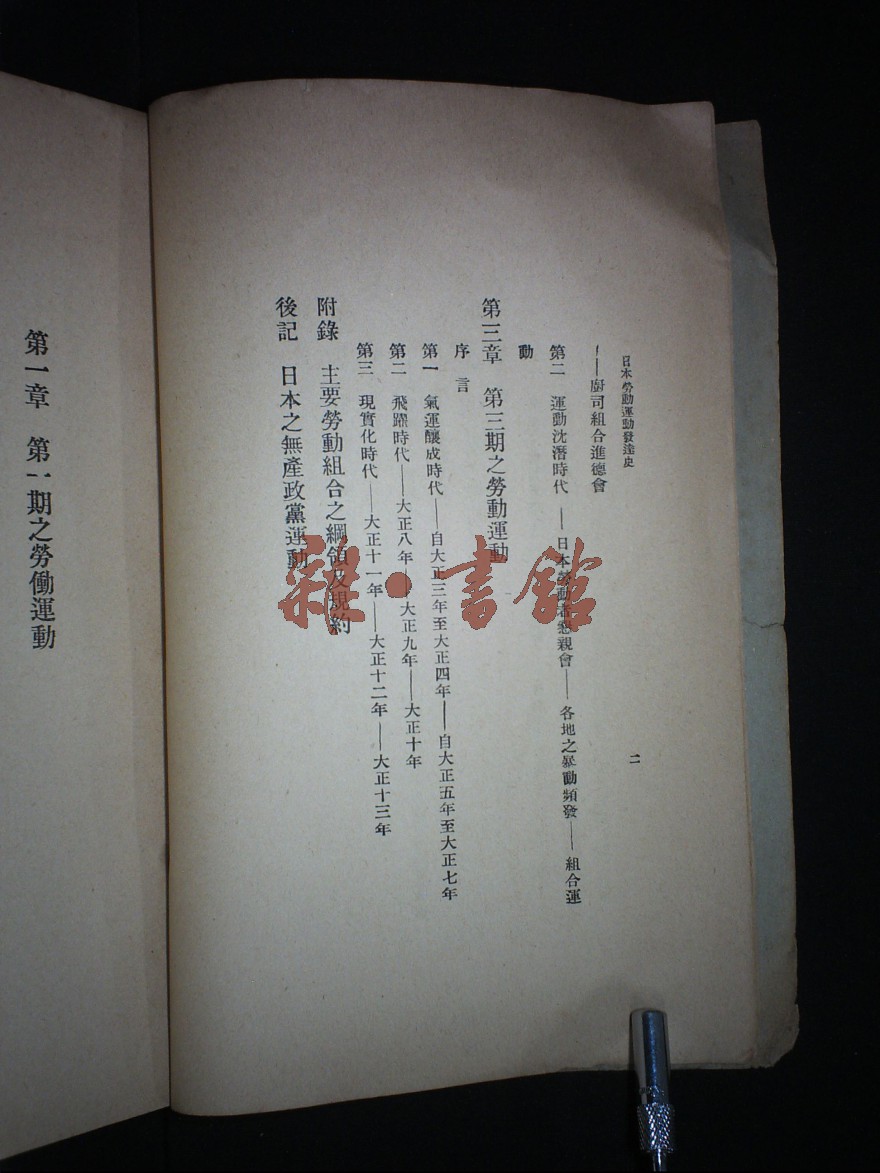 日本勞動運動發達史
二
︱——廚司組合進德會
第二　運動沈潛時代——日本勞動者懇親會——各地之暴動頻發——組合運
動
第三章　第三期之勞動運動
序言
第一　氣運釀成時代——自大正三年至大正四年——自大正五年至大正七年
第二　飛躍時代——大正八年——大正九年——大正十年
第三　現實化時代——大正十一年——大正十二年——大正十三年
附錄　主要勞動組合之綱領及規約
後記　日本之無產政黨運動
第一章　第一期之勞働運動
雜·書館